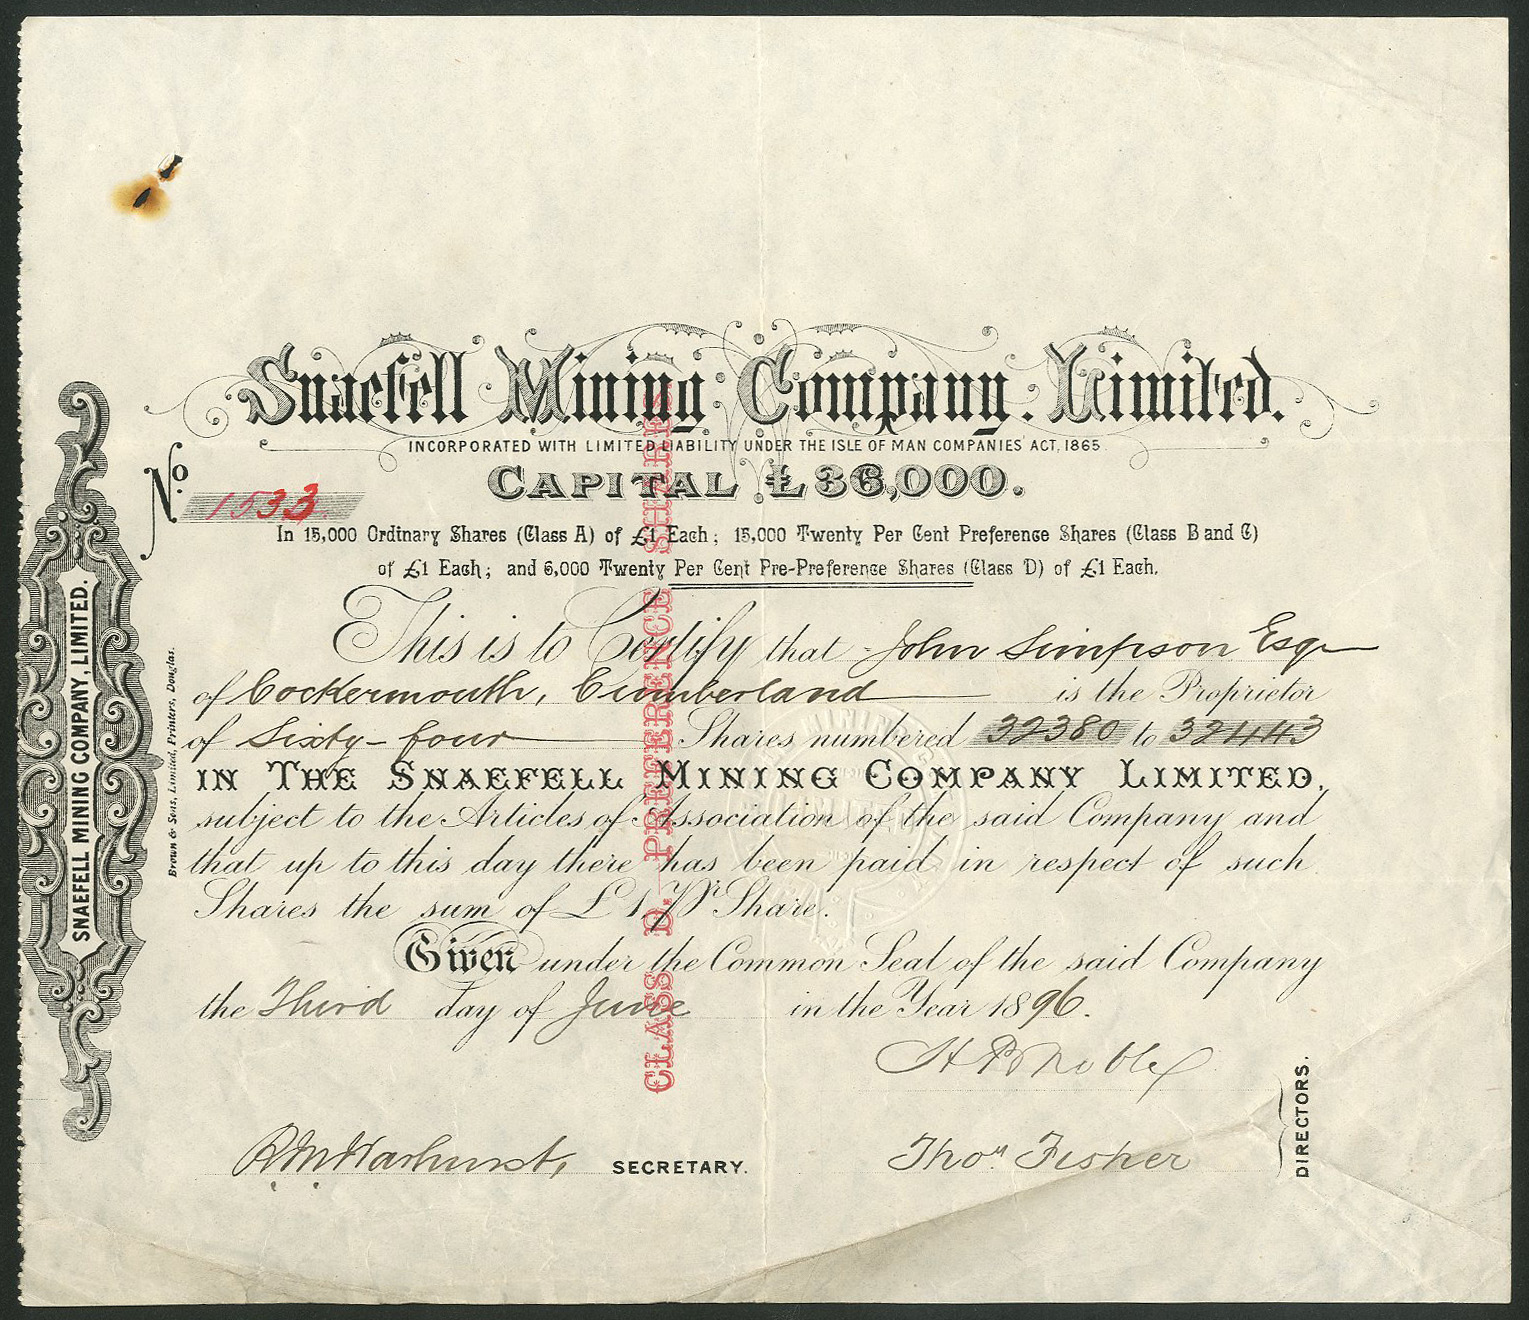 Snaefell Mining Company. Limited.
INCORPORATED WITH LIMITED LIABILITY UNDER THE ISLE OF MAN COMPANIES' ACT, 1865.
No. 1533
CAPITAL £36,000.
In 15,000 Ordinary Shares (Class A) of £1 Each; 15,000 Twenty Per Cent Preference Shares (Class B and C)
of £1 Each; and 6,000 Twenty Per Cent Pre-Preference Shares (Class D) of £1 Each.
This is to Certify that John Simpson Esqr
of Cockermouth, Cumberland is the Proprietor
of Sixty-four Shares numbered 32380 to 32443
IN THE SNAEFELL MINING COMPANY LIMITED,
subject to the Articles of Association of the said Company and
that up to this day there has been paid in respect of such
Shares the sum of £1 Pr Share.
Given under the Common Seal of the said Company
the Third day of June in the Year 1896.
H B Noble
Thos. Fisher
DIRECTORS.
SECRETARY.
CLASS D. PREFERENCE SHARES
SNAEFELL MINING COMPANY, LIMITED.
Brown & Sons, Limited, Printers, Douglas.